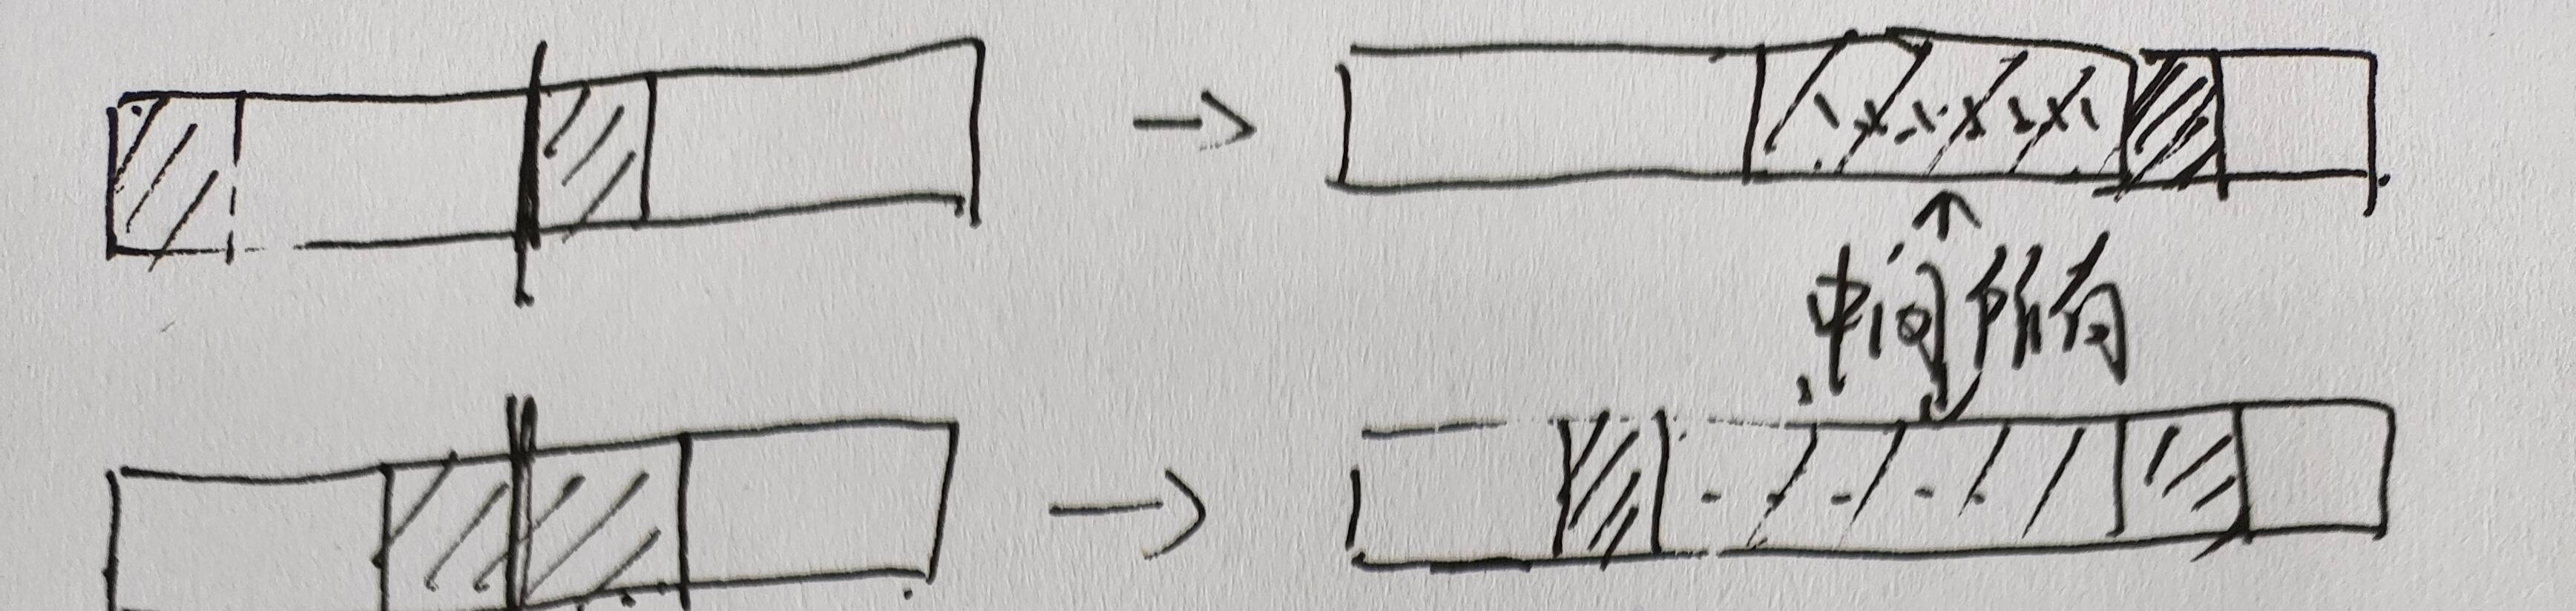 中间所有